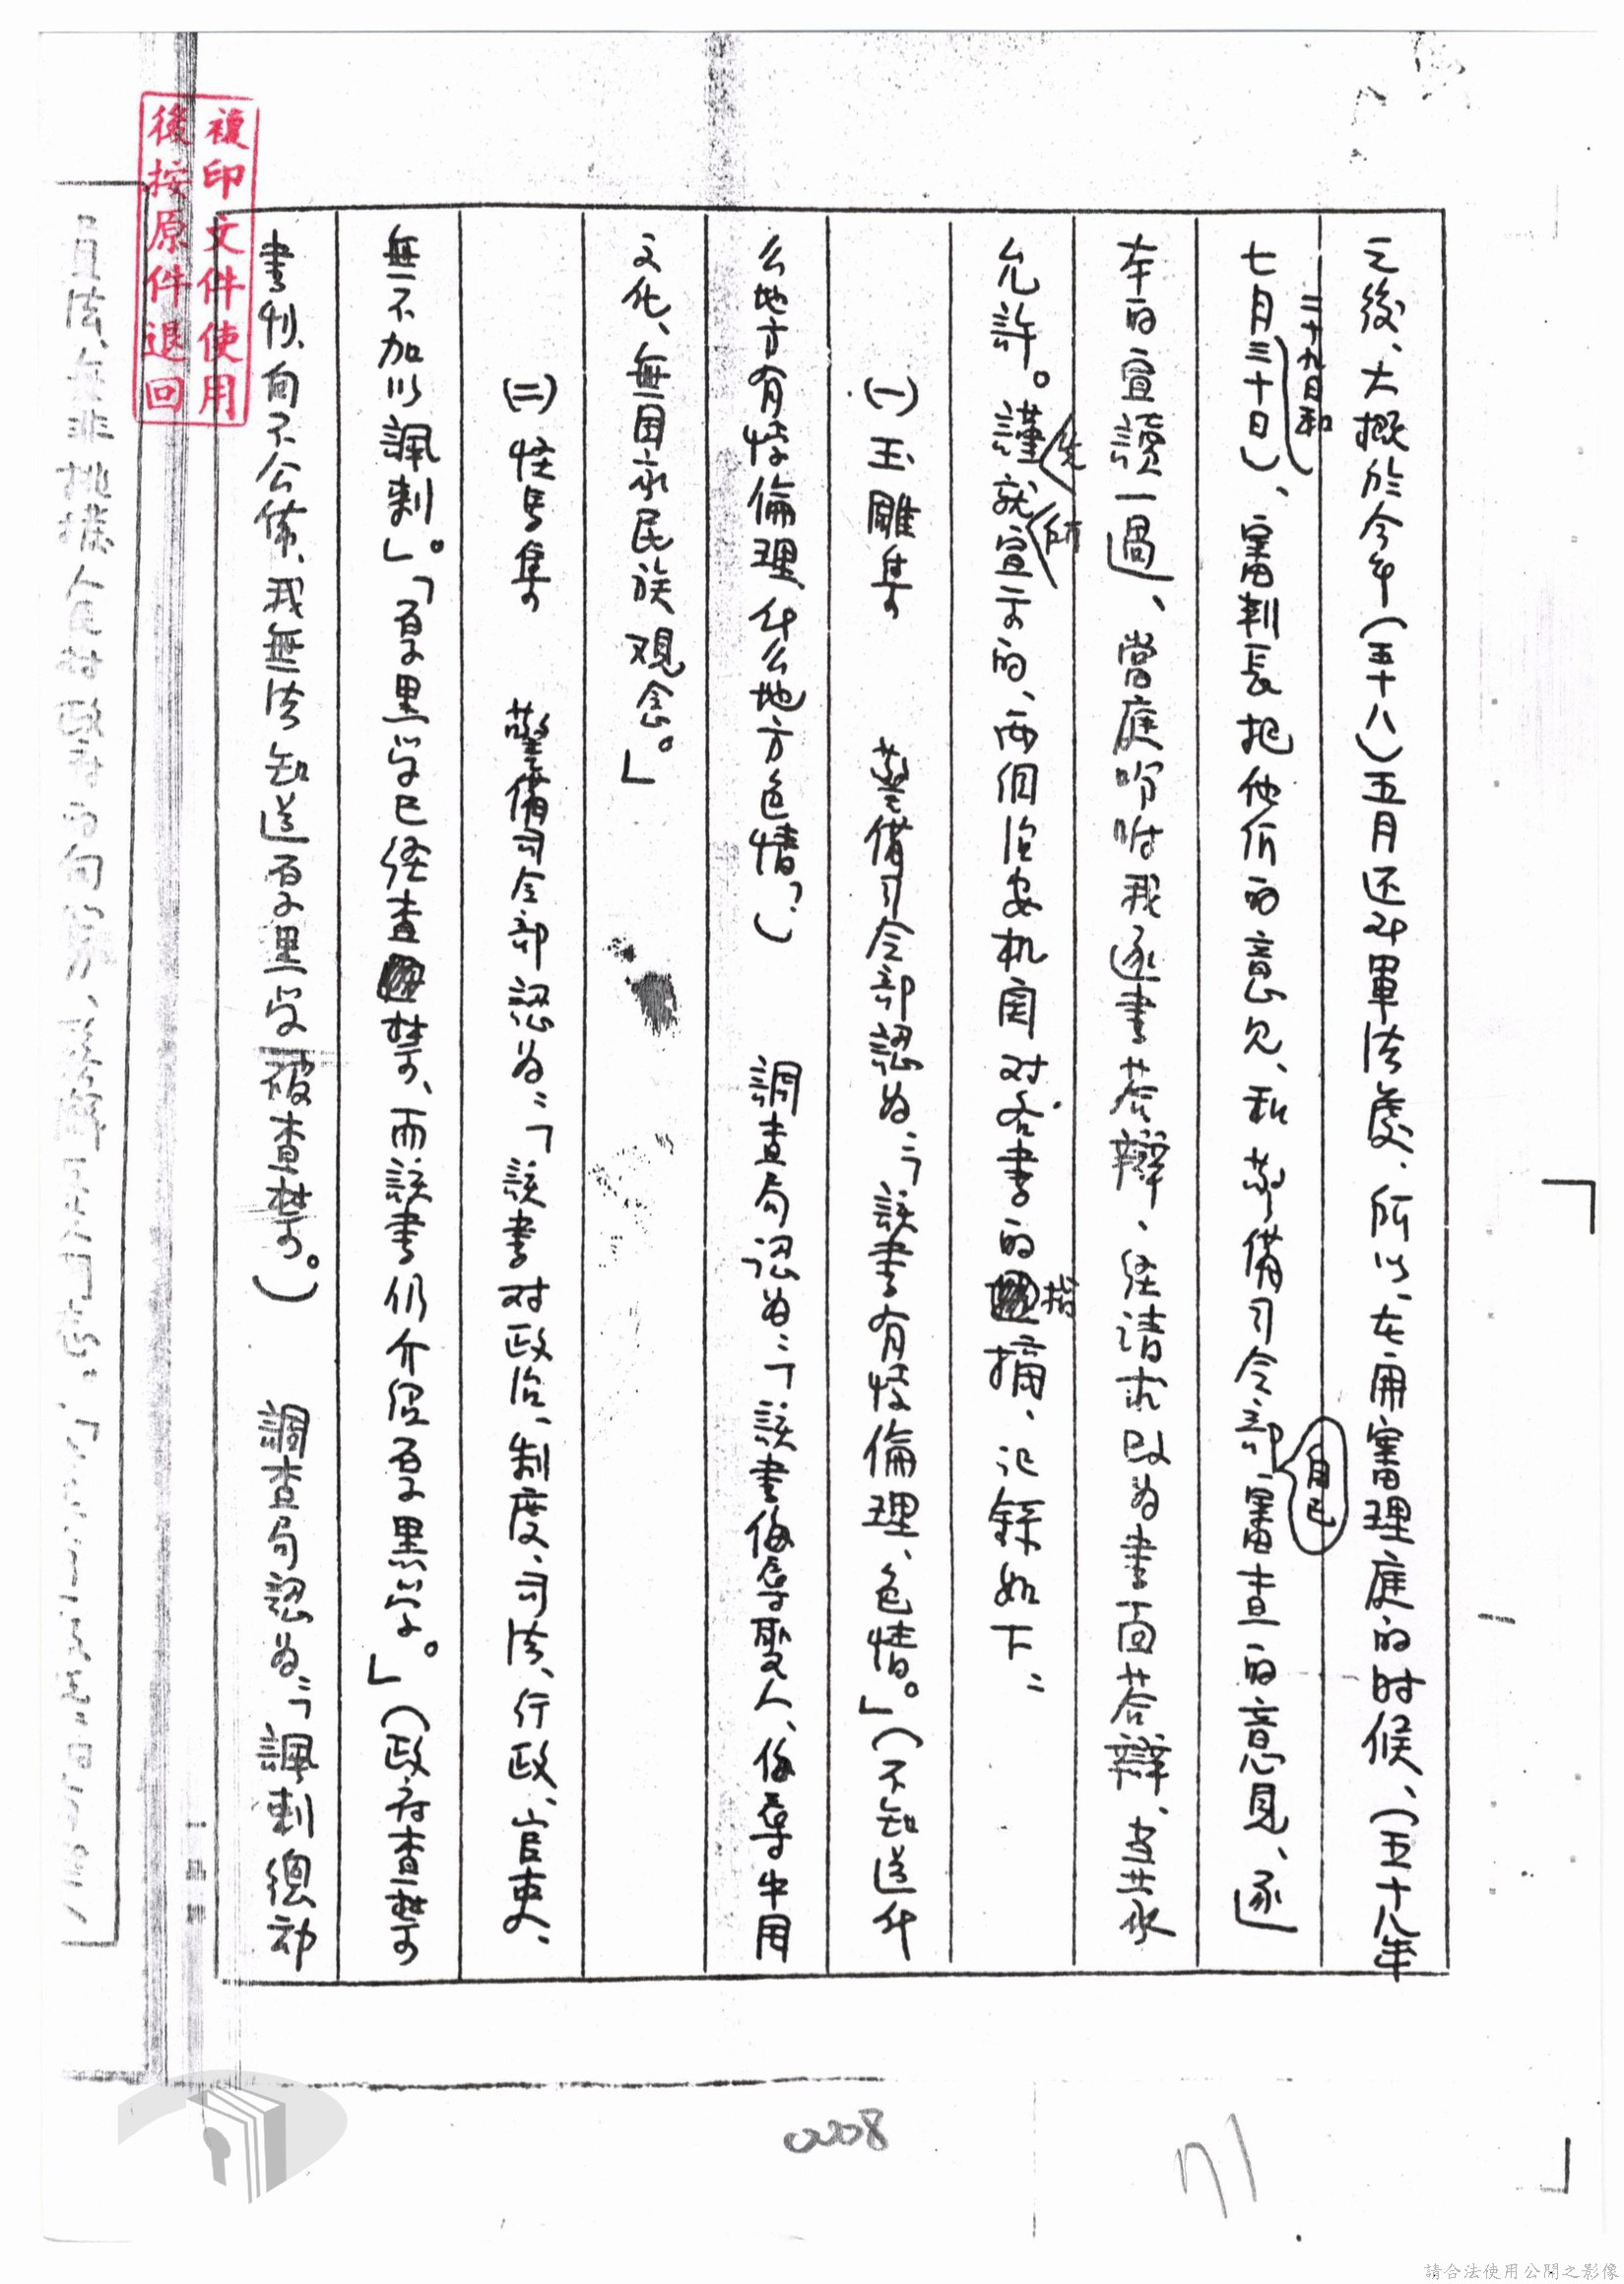 之後、大概於今年（五十八）五月还郤軍法處、所以、在開審理庭的时候、（五十八年
二十九日和
七月三十日）、審判長把他们的意见、和警備司令部審查的意見、逐
自已
本的宣讀一過、當庭吩咐我逐書荅辯、经请求改为書面荅辯、並共承
允許。謹就宣示的、两個治安机関对各書的摘、记錄如下：
先
所
指
㈠玉雕集　警備司令部認为：「該書有悖倫理、色情。」（不知道什
么地方有悖倫理、什么地方色情？）　調查局認为：「該書侮辱聖人、侮辱中国
文化、無国家民族观念。」
㈡怪馬集　警備司令部認为：「該書对政治、制度、司法、行政、官吏、
無不加以諷刺」。「厚黑学已经查禁、而該書仍介绍厚黑学。」（政府查禁
書刊、向不公佈、我無法知道厚黑学被查禁。）　調查局認为：「諷刺總动
複印文件使用
後按原件退回
0208
71
請合法使用公開之影像